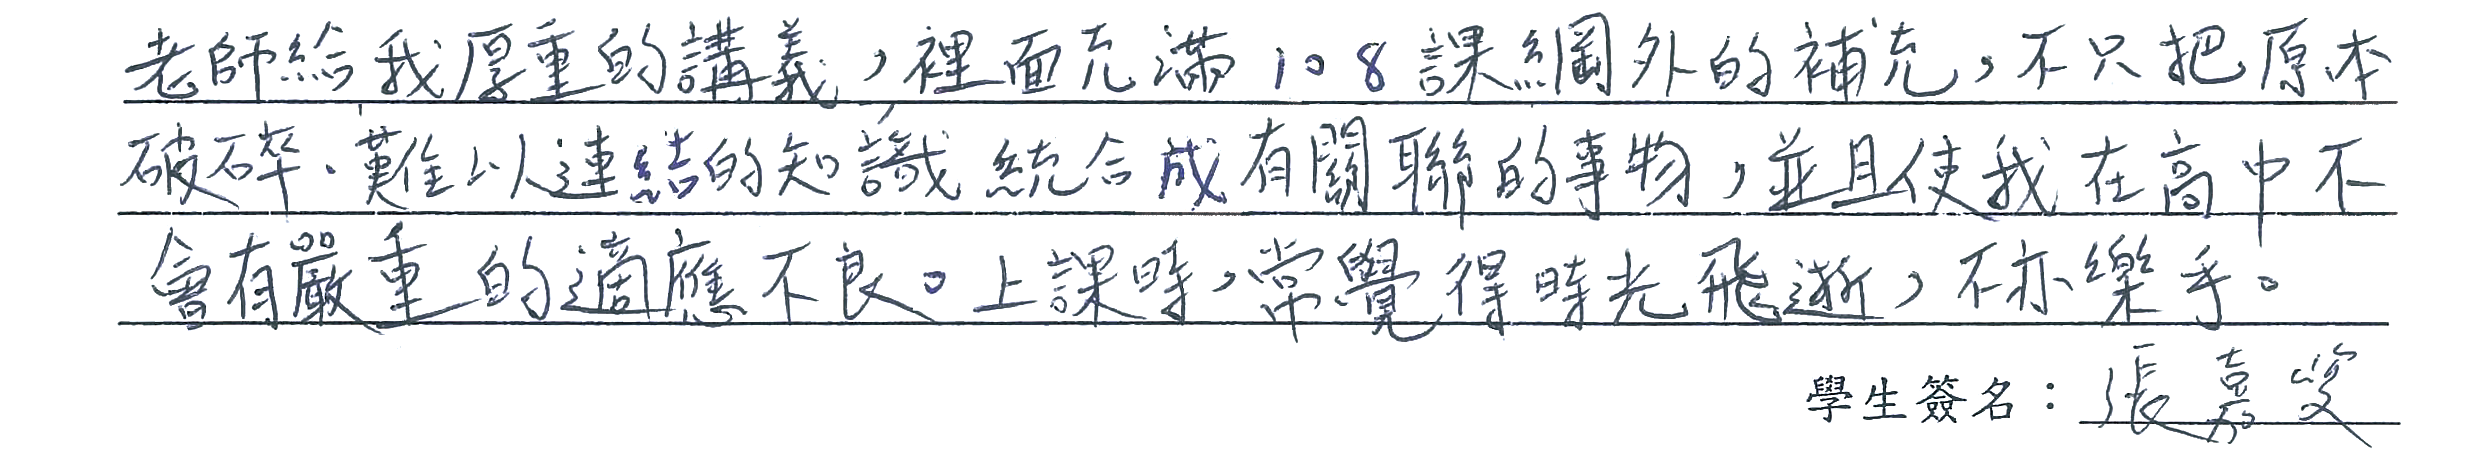 老師給我厚重的講義，裡面充滿108課綱外的補充，不只把原本
破碎、難以連結的知識統合成有關聯的事物，並且使我在高中不
會有嚴重的適應不良。上課時，常覺得時光飛逝，不亦樂乎。
學生簽名：張嘉